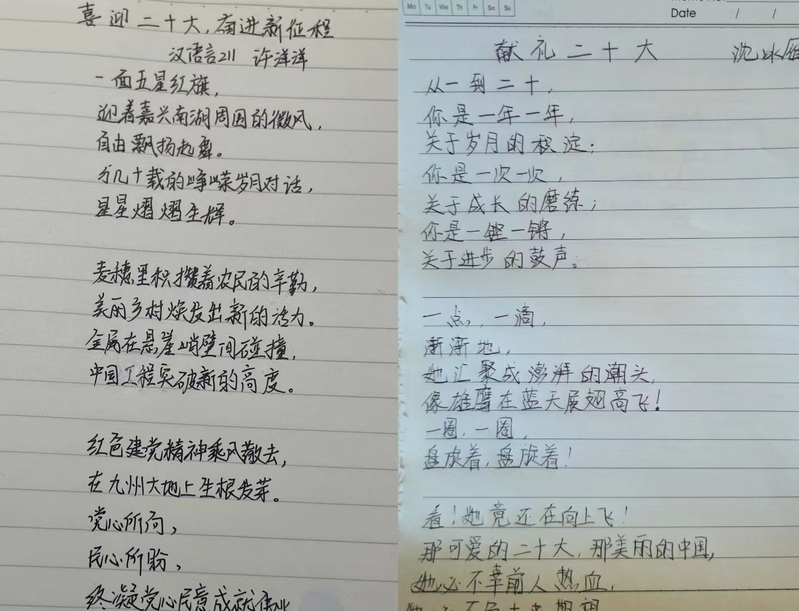 喜迎二十大，奋进新征程
汉语言211 许洋洋
一面五星红旗，
迎着嘉兴南湖周围的微风，
自由飘扬起舞。
与几十载的峥嵘岁月对话，
星星熠熠生辉。
麦穗里积攒着农民的辛勤，
美丽乡村焕发出新的活力。
金属在悬崖峭壁间碰撞，
中国工程突破新的高度。
红色建党精神乘风散去，
在九州大地上生根发芽。
党心所向，
民心所盼，
终凝党心民意成就伟业
Mo Tu We Th Fr Sa Su
Date / /
献礼二十大 沈冰雁
从一到二十，
你是一年一年，
关于岁月的积淀；
你是一次一次，
关于成长的磨练；
你是一铿一锵，
关于进步的鼓声。
一点，一滴，
渐渐地，
她汇聚成澎湃的潮头，
像雄鹰在蓝天展翅高飞！
一圈，一圈，
盘旋着，盘旋着！
看！她竟还在向上飞！
那可爱的二十大，那美丽的中国，
她必不辜前人热血，